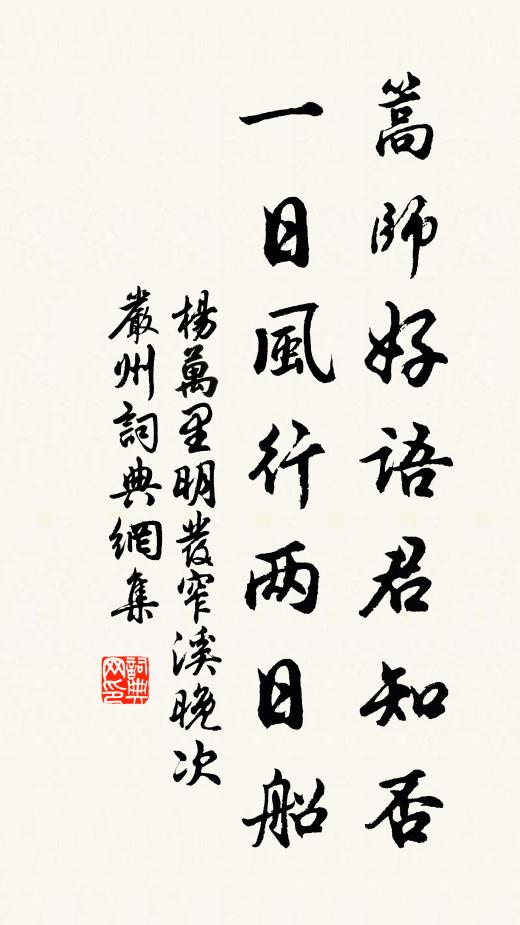 篙師好語君知否
一日風行两日船
楊萬里明發窄溪晚次
嚴州詞典網集
詞典网印